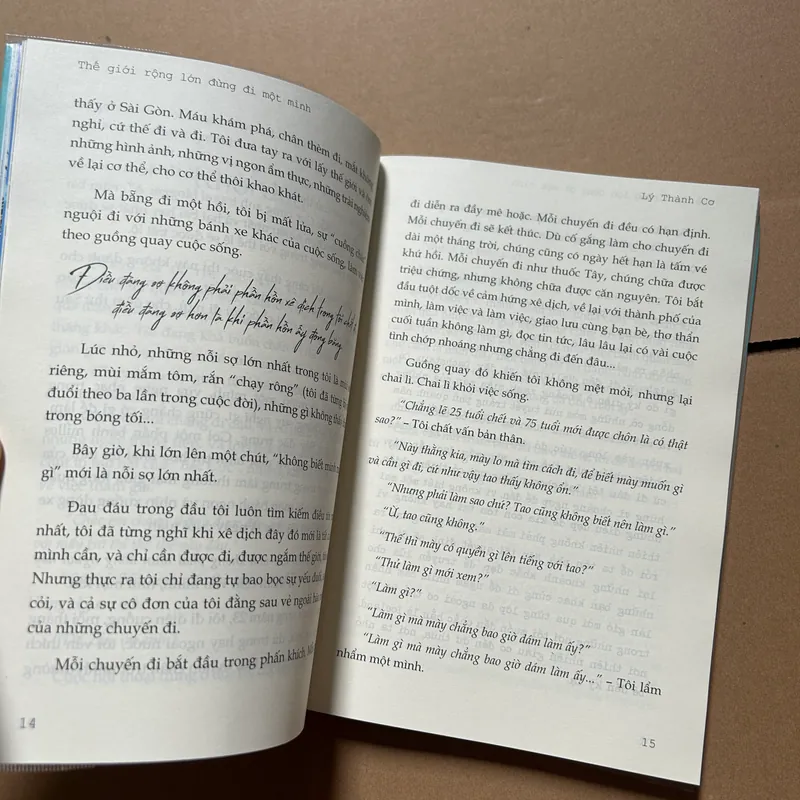 Thế giới rộng lớn đừng đi một mình
thấy ở Sài Gòn. Máu khám phá, chân thèm đi, mắt không
nghỉ, cứ thế đi và đi. Tôi đưa tay ra với lấy thế giới và
những hình ảnh, những vị ngon ẩm thực, những trải nghiệm
về lại cơ thể, cho cơ thể thôi khao khát.
Mà bẵng đi một hồi, tôi bị mất lửa, sự “cuồng chân”
nguội đi với những bánh xe khác của cuộc sống, làm việc
theo guồng quay cuộc sống.
Điều đáng sợ không phải phần hồn xê dịch trong tôi chết đi
điều đáng sợ hơn là khi phần hồn ấy đóng băng
Lúc nhỏ, những nỗi sợ lớn nhất trong tôi là
riêng, mùi mắm tôm, rắn “chạy rông” (tôi đã từng bị
đuổi theo ba lần trong cuộc đời), những gì không thể
trong bóng tối...
Bây giờ, khi lớn lên một chút, “không biết mình
gì” mới là nỗi sợ lớn nhất.
Đau đáu trong đầu tôi luôn tìm kiếm điều
nhất, tôi đã từng nghĩ khi xê dịch đây đó mới là
mình cần, và chỉ cần được đi, được ngắm thế giới,
Nhưng thực ra tôi chỉ đang tự bao bọc sự yếu đuối,
cỏi, và cả sự cô đơn của tôi đằng sau vẻ ngoài
của những chuyến đi.
Mỗi chuyến đi bắt đầu trong phấn khích,
14
Lý Thành Cơ
đi diễn ra đầy mê hoặc. Mỗi chuyến đi đều có hạn định.
Mỗi chuyến đi sẽ kết thúc. Dù cố gắng làm cho chuyến đi
dài một tháng trời, chúng cũng có ngày hết hạn là tấm vé
khứ hồi. Mỗi chuyến đi như thuốc Tây, chúng chữa được
triệu chứng, nhưng không chữa được căn nguyên. Tôi bắt
đầu tuột dốc về cảm hứng xê dịch, về lại với thành phố của
mình, làm việc và làm việc, giao lưu cùng bạn bè, thơ thẩn
cuối tuần không làm gì, đọc tin tức, lâu lâu lại có vài cuộc
tình chớp nhoáng nhưng chẳng đi đến đâu...
Guồng quay đó khiến tôi không mệt mỏi, nhưng lại
chai lì. Chai lì khỏi việc sống.
“Chẳng lẽ 25 tuổi chết và 75 tuổi mới được chôn là có thật
sao?” – Tôi chất vấn bản thân.
“Này thằng kia, mày lo mà tìm cách đi, để biết mày muốn gì
và cần gì đi, cứ như vậy tao thấy không ổn.”
“Nhưng phải làm sao chứ? Tao cũng không biết nên làm gì.”
“Ừ, tao cũng không.”
“Thế thì mày có quyền gì lên tiếng với tao?”
“Thử làm gì mới xem?”
“Làm gì?”
“Làm gì mà mày chẳng bao giờ dám làm ấy?”
“Làm gì mà mày chẳng bao giờ dám làm ấy...” – Tôi lẩm
nhẩm một mình.
15